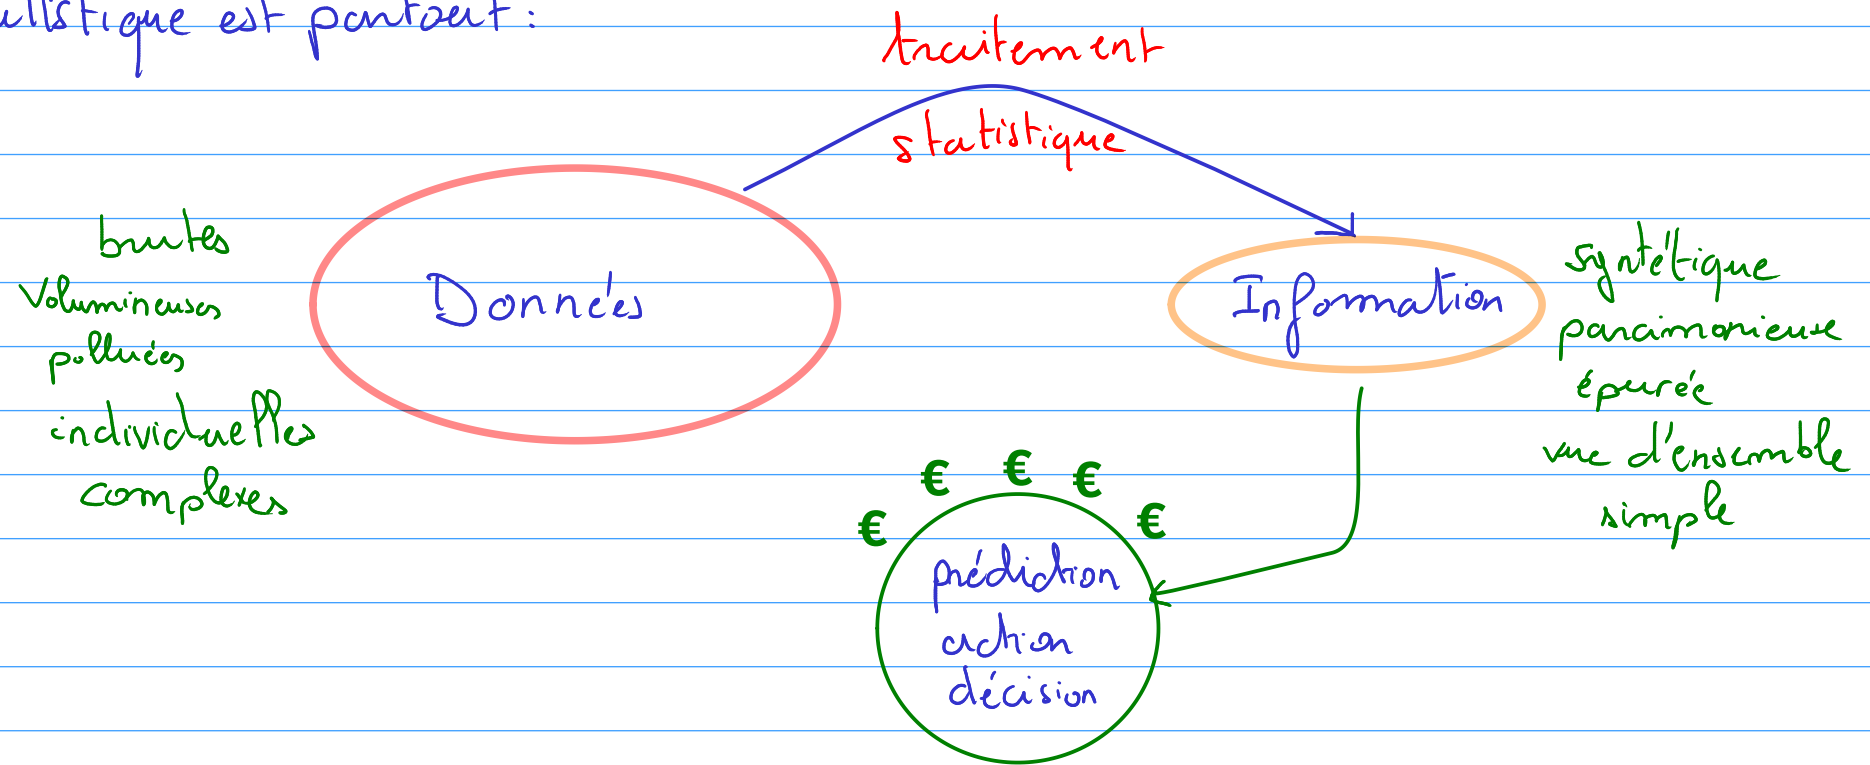 est partout :
traitement
statistique
brutes
Volumineuses
polluées
individuelles
complexes
Données
Information
syntétique
parcimonieuse
épurée
vue d'ensemble
simple
€ € € € €
prédiction
action
décision